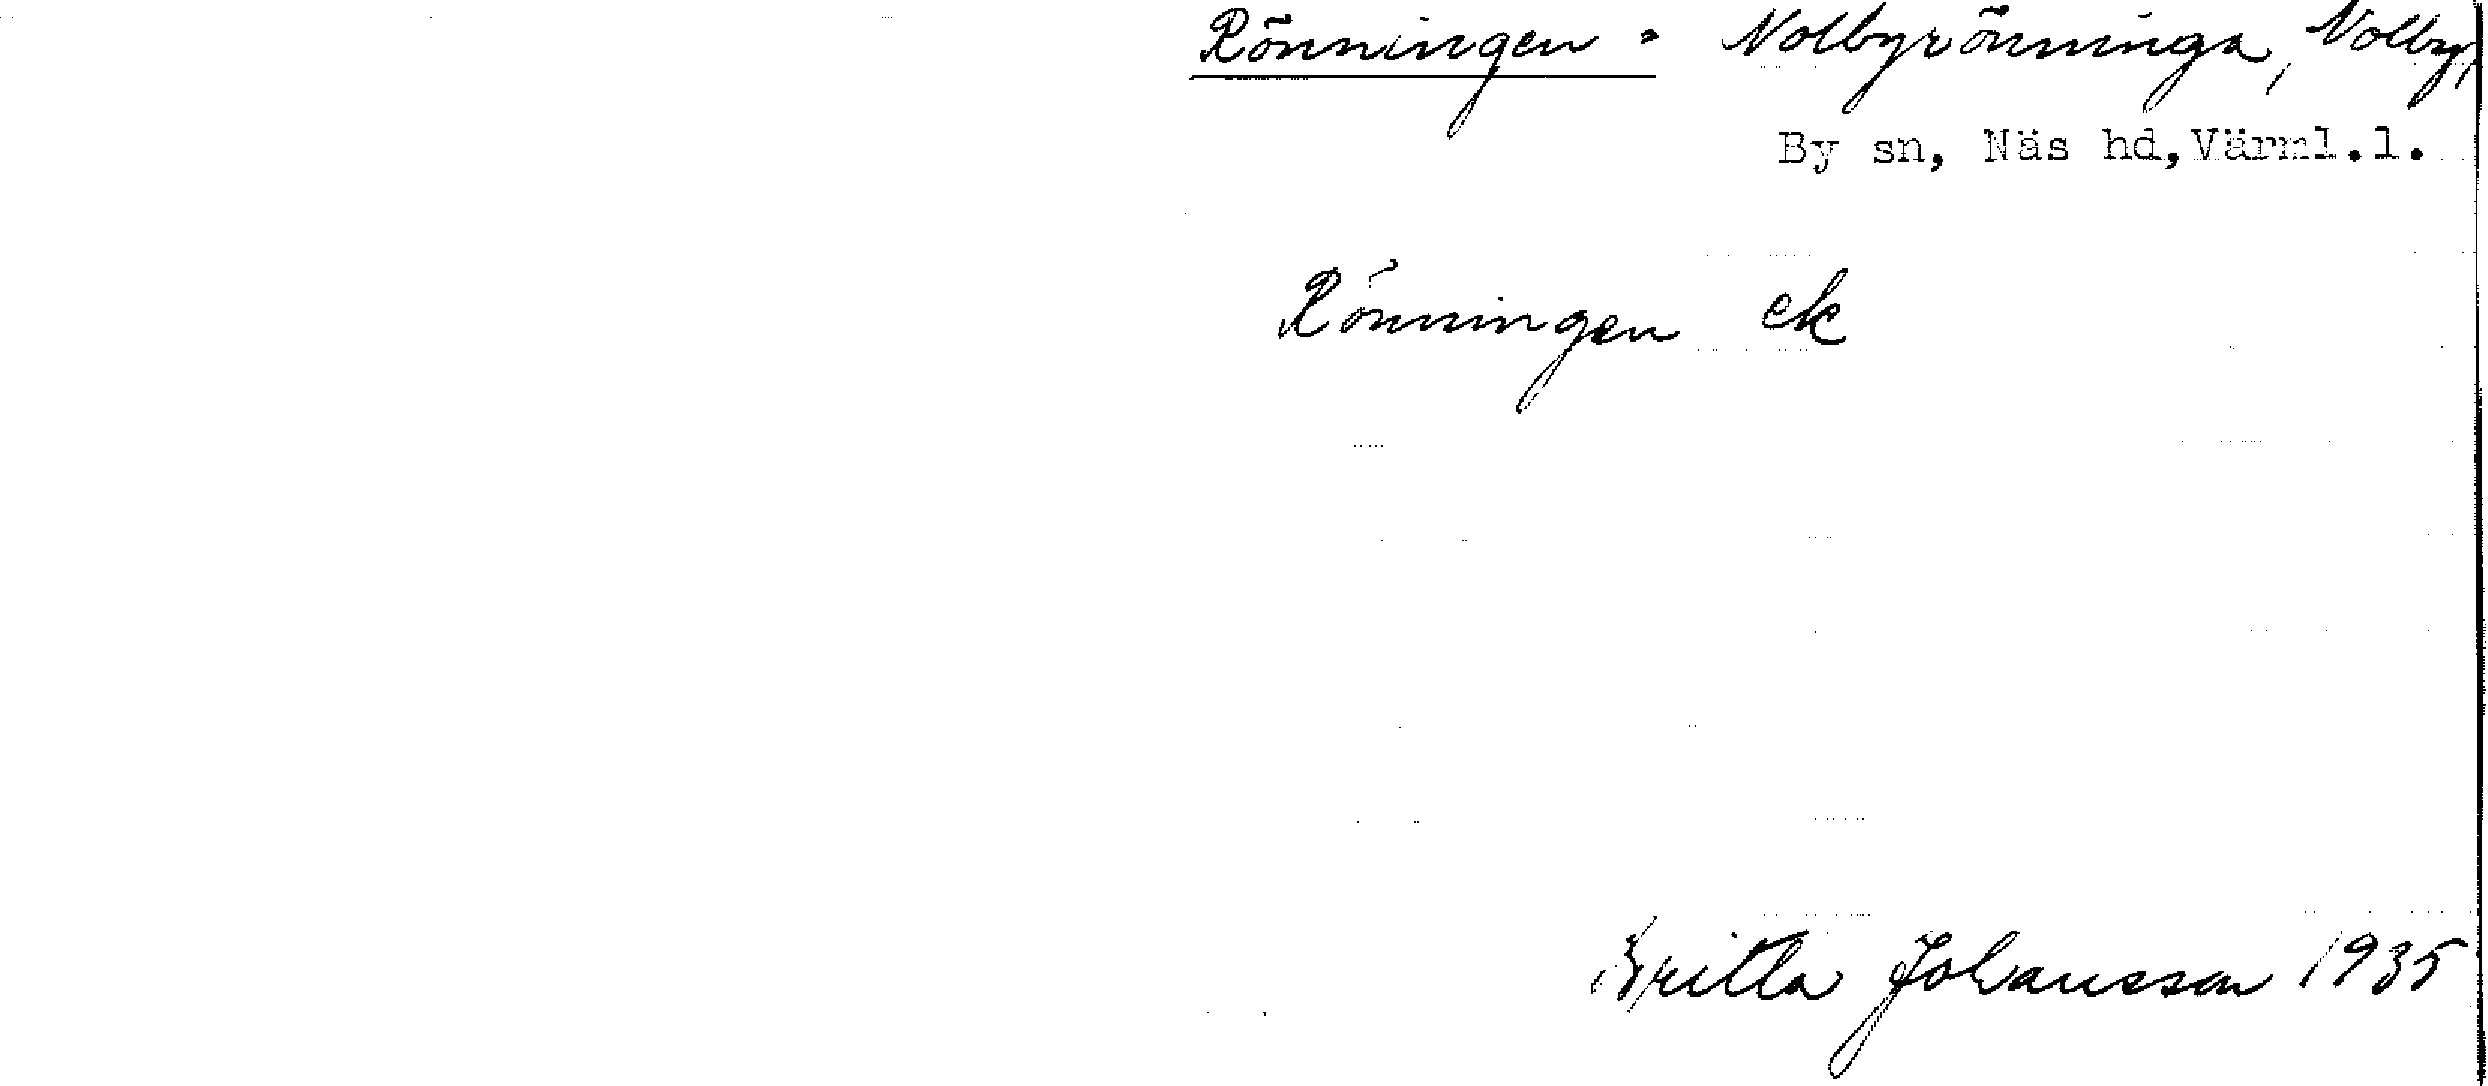 Rönningen = Nolbyrönninga, Nolby,
By sn, Näs hd, Värml.l.
Rönningen ek
Britta Johansson 1935